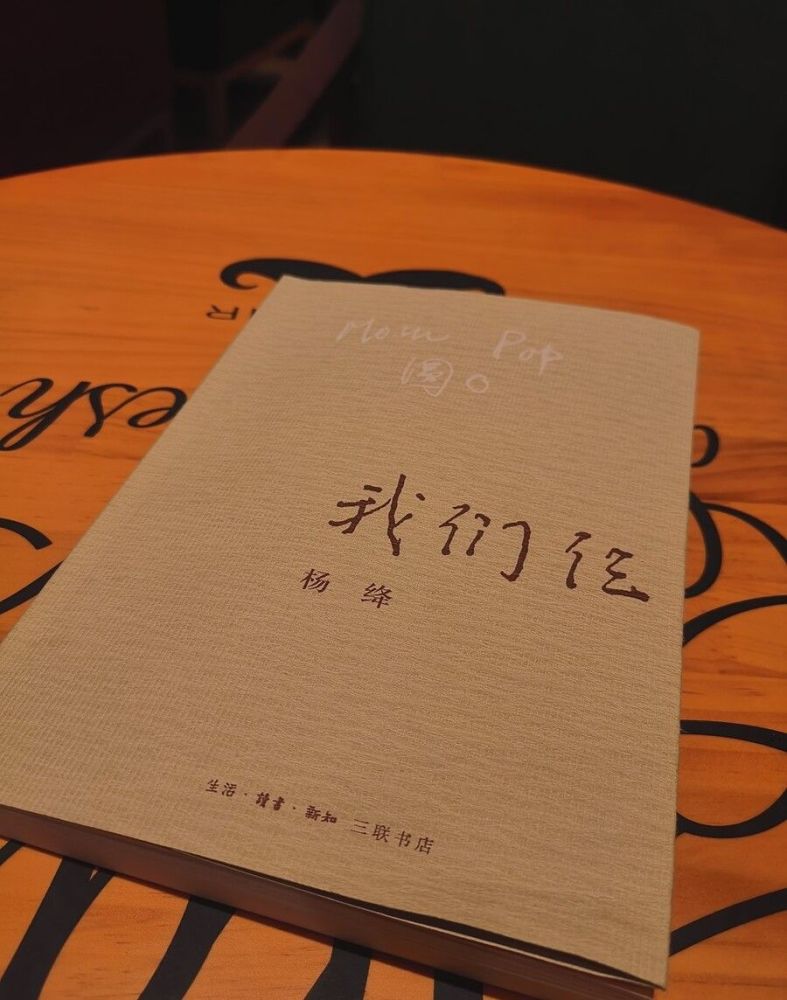 Mom Pop
圆○
我们仨
杨绛
生活·讀書·新知 三联书店